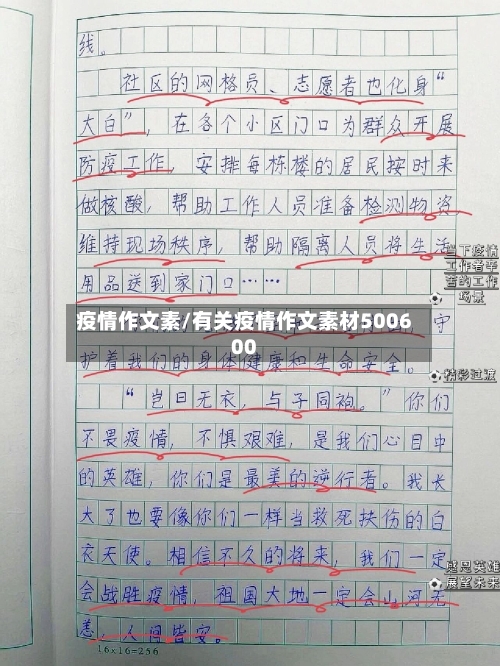 线。
社区的网格员、志愿者也化身“
大白”，在各个小区门口为群众开展
防疫工作，安排每栋楼的居民按时来
做核酸，帮助工作人员准备检测物资
维持现场秩序，帮助隔离人员将生活
用品送到家门口……
当下疫情
工作者辛
苦的工作
场景
疫情作文素/有关疫情作文素材5006
00
守
护着我们的身体健康和生命安全。
精彩过渡
“岂曰无衣，与子同袍。”你们
不畏疫情，不惧艰难，是我们心目中
的英雄，你们是最美的逆行者。我长
大了也要像你们一样当救死扶伤的白
衣天使。相信不久的将来，我们一定
会战胜疫情，祖国大地一定会山河无
恙，人间皆安。
感恩英雄
展望未来
16×16=256